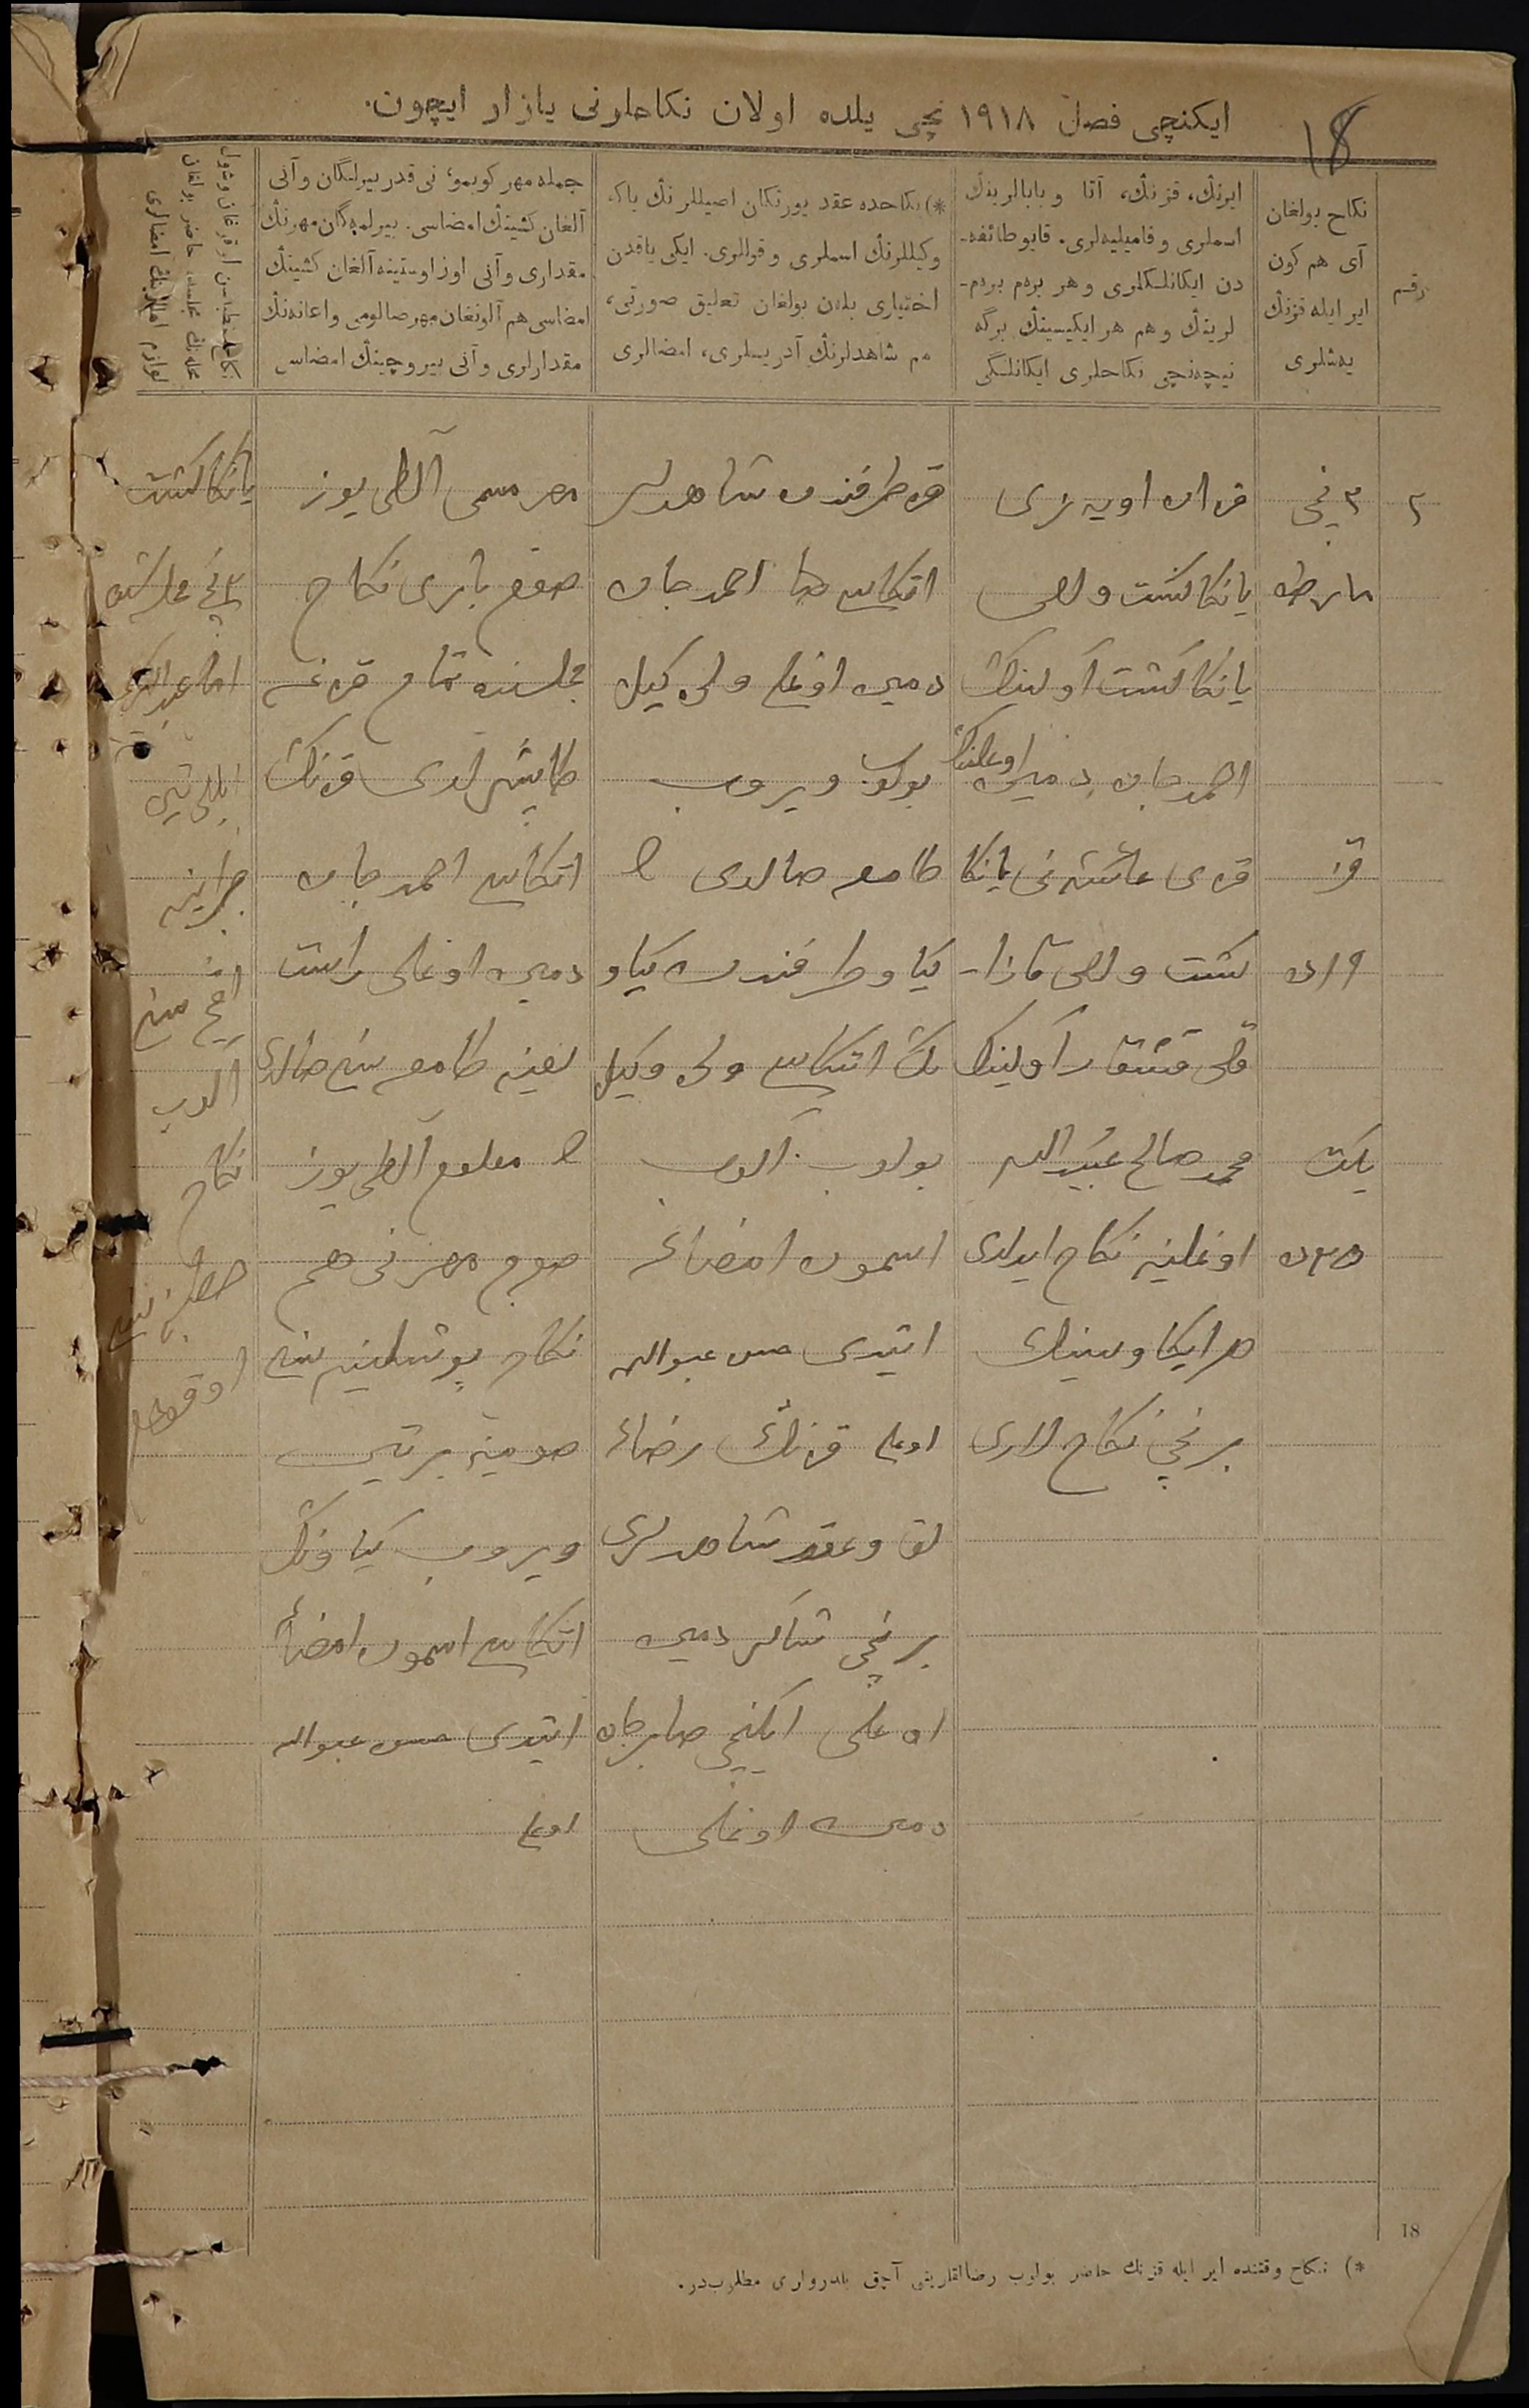 ایکنچی فصل ۱۹۱۸ نچی یلده اولان نکاحلرنی یازار ایچون.
18
رقم
نکاح بولغان
آی هم کون
ایر ایله قزنڭ
یه‌شلری
ایرنڭ، قزنڭ، آتا و بابالرینڭ
اسملری و فامیلیه‌لری. قایو طائفه-
دن ایکانلکلری و هر بره‌م بره‌م-
لرینڭ و هم هر ایکیسینڭ برگه
نیچه‌نچی نکاحلری ایکانلگی
*) نکاحده عقد یورتکان اصیللرنڭ یاکه
وکیللرنڭ اسملری و قوللری. ایکی یاقدن
اختیاری بله‌ن بولغان تعلیق صورتی،
هم شاهدلرنڭ آدریسلری، امضالری
جمله مهر کوپمو، نی قدر بیرلگان و آنی
آلغان کشینڭ امضاسی. بیرلمه‌گان مهرنڭ
مقداری و آنی اوز اوستینه آلغان کشینڭ
امضاسی هم آلونغان مهر صالومی و اعانه‌نڭ
مقدارلری و آنی بیروچینڭ امضاسی
۲
۳ نچی
مارطه
قز
۱۹ ده
یکت
۲۵ ده
قزان اویه‌زی
یانکا کشت ولصی
یانکا کشت آولینڭ
احمدجان دمین اوغلینڭ
قزی عائشه نی یانکا
کشت ولصی قازا-
قلی قشقار آولینڭ
محمد صالح عبیدالله
اوغلینه نکاح ایدلدی
هر ایکاوسینڭ
برنچی نکاح لاری
قز طرفندن شاهدلر
اتکاسی احمدجان
دمین اوغلی ولی وکیل
بولوب ویروب
طامغه صالدی
کیاو طرفندن کیاو
نڭ اتکاسی ولی وکیل
بولوب آلوب
اسمون امضاء
ایتدی حسن عبدالله
اوغلی قزنڭ رضاء
لق و عقد شاهدلری
برنچی شاکر دمین
اوغلی ایکنچی صابرجان
دمین اوغلی
مهر مسمی آلطی یوز
صوم باری نکاح
مجلسنده تمام قزغه
طابشرلدی قزنڭ
اتکاسی احمدجان
دمین اوغلی راست
لغینه طامغه سنی صالدی
معلوم آلطی یوز
صوم مهرنی هم
نکاح پوشلینه سنی
صومینه بر تین
ویروب کیاونڭ
اتکاسی اسمون امضاء
ایتدی حسن عبدالله
اوغلی
یانکا کشت
نکاح
خطبه سنی
اوقودم
18
*) نکاح وقتنده ایر ایله قزنڭ حاضر بولوب رضالقلرینی آچق بلدرولری مطلوب‌در.